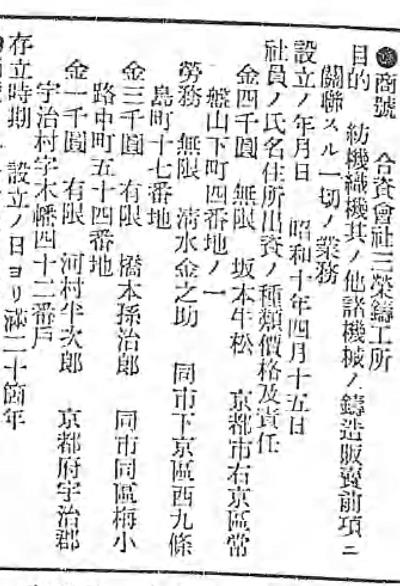 ●商號　合資會社三榮鑄工所
目的　紡機織機其ノ他諸機械ノ鑄造販賣前項ニ
關聯スル一切ノ業務
設立ノ年月日　昭和十年四月十五日
社員ノ氏名住所出資ノ種類價格及責任
金四千圓　無限　坂本牛松　京都市右京區常
盤山下町四番地ノ一
勞務　無限　淸水金之助　同市下京區西九條
島町十七番地
金三千圓　有限　橋本孫治郞　同市同區梅小
路中町五十四番地
金一千圓　有限　河村半次郞　京都府宇治郡
宇治村字木幡四十二番戶
存立時期　設立ノ日ヨリ滿二十箇年